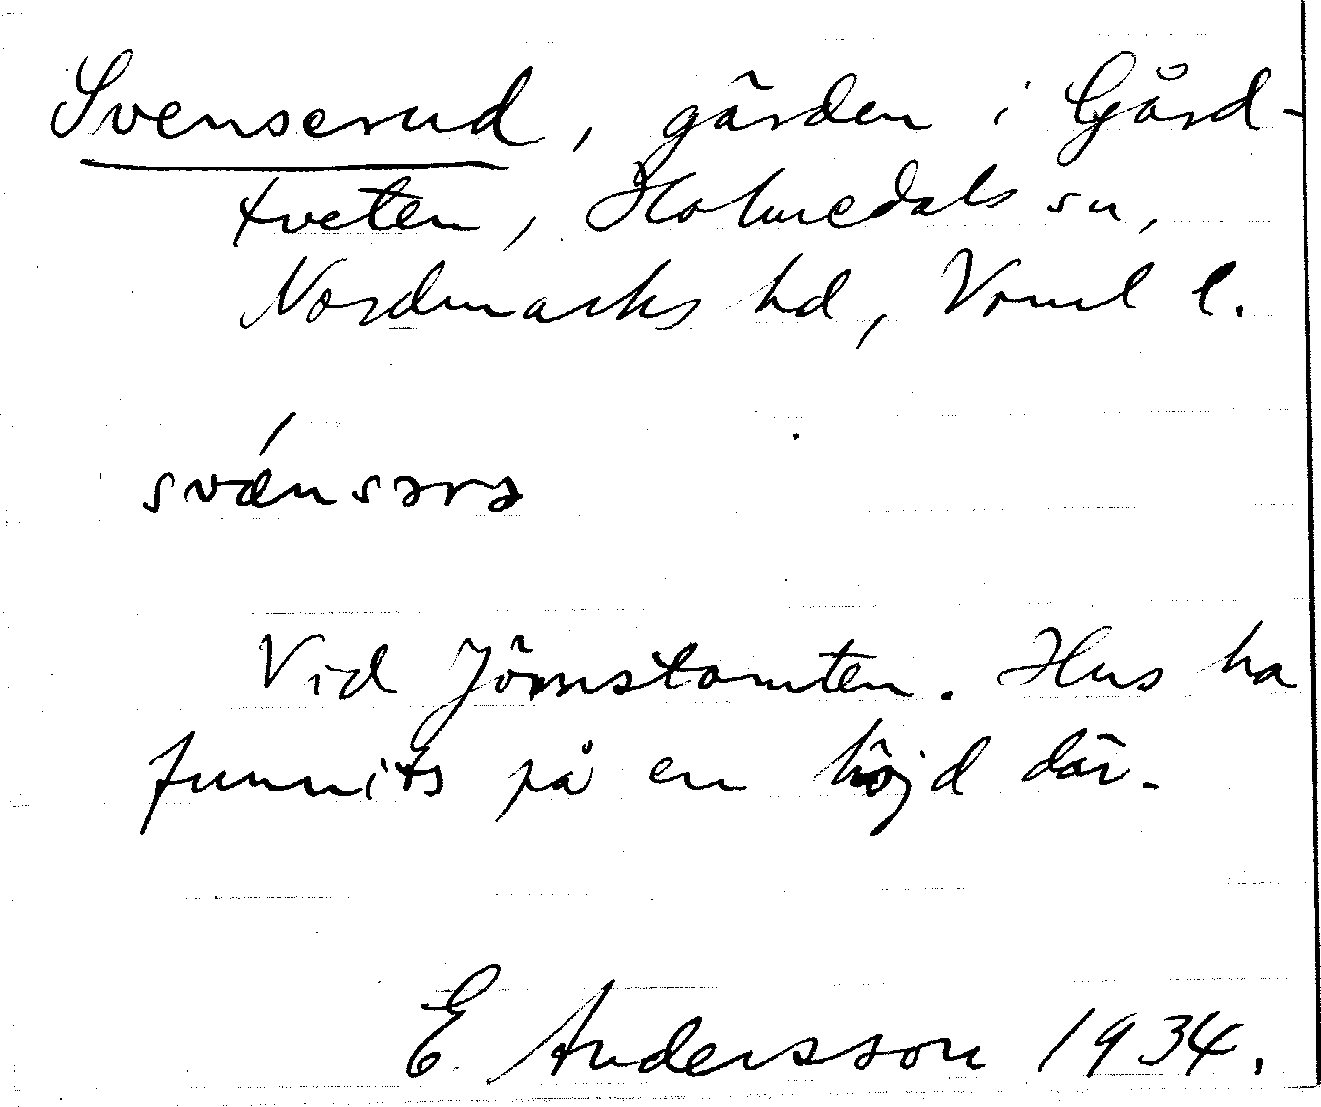 Svenserud, gärden i Gård-
tveten, Holmedals sn,
Nordmarks hd, Vrml l.
svǽnsərə
Vid Jönstomten. Hus ha
funnits på en höjd där.
E Andersson 1934.